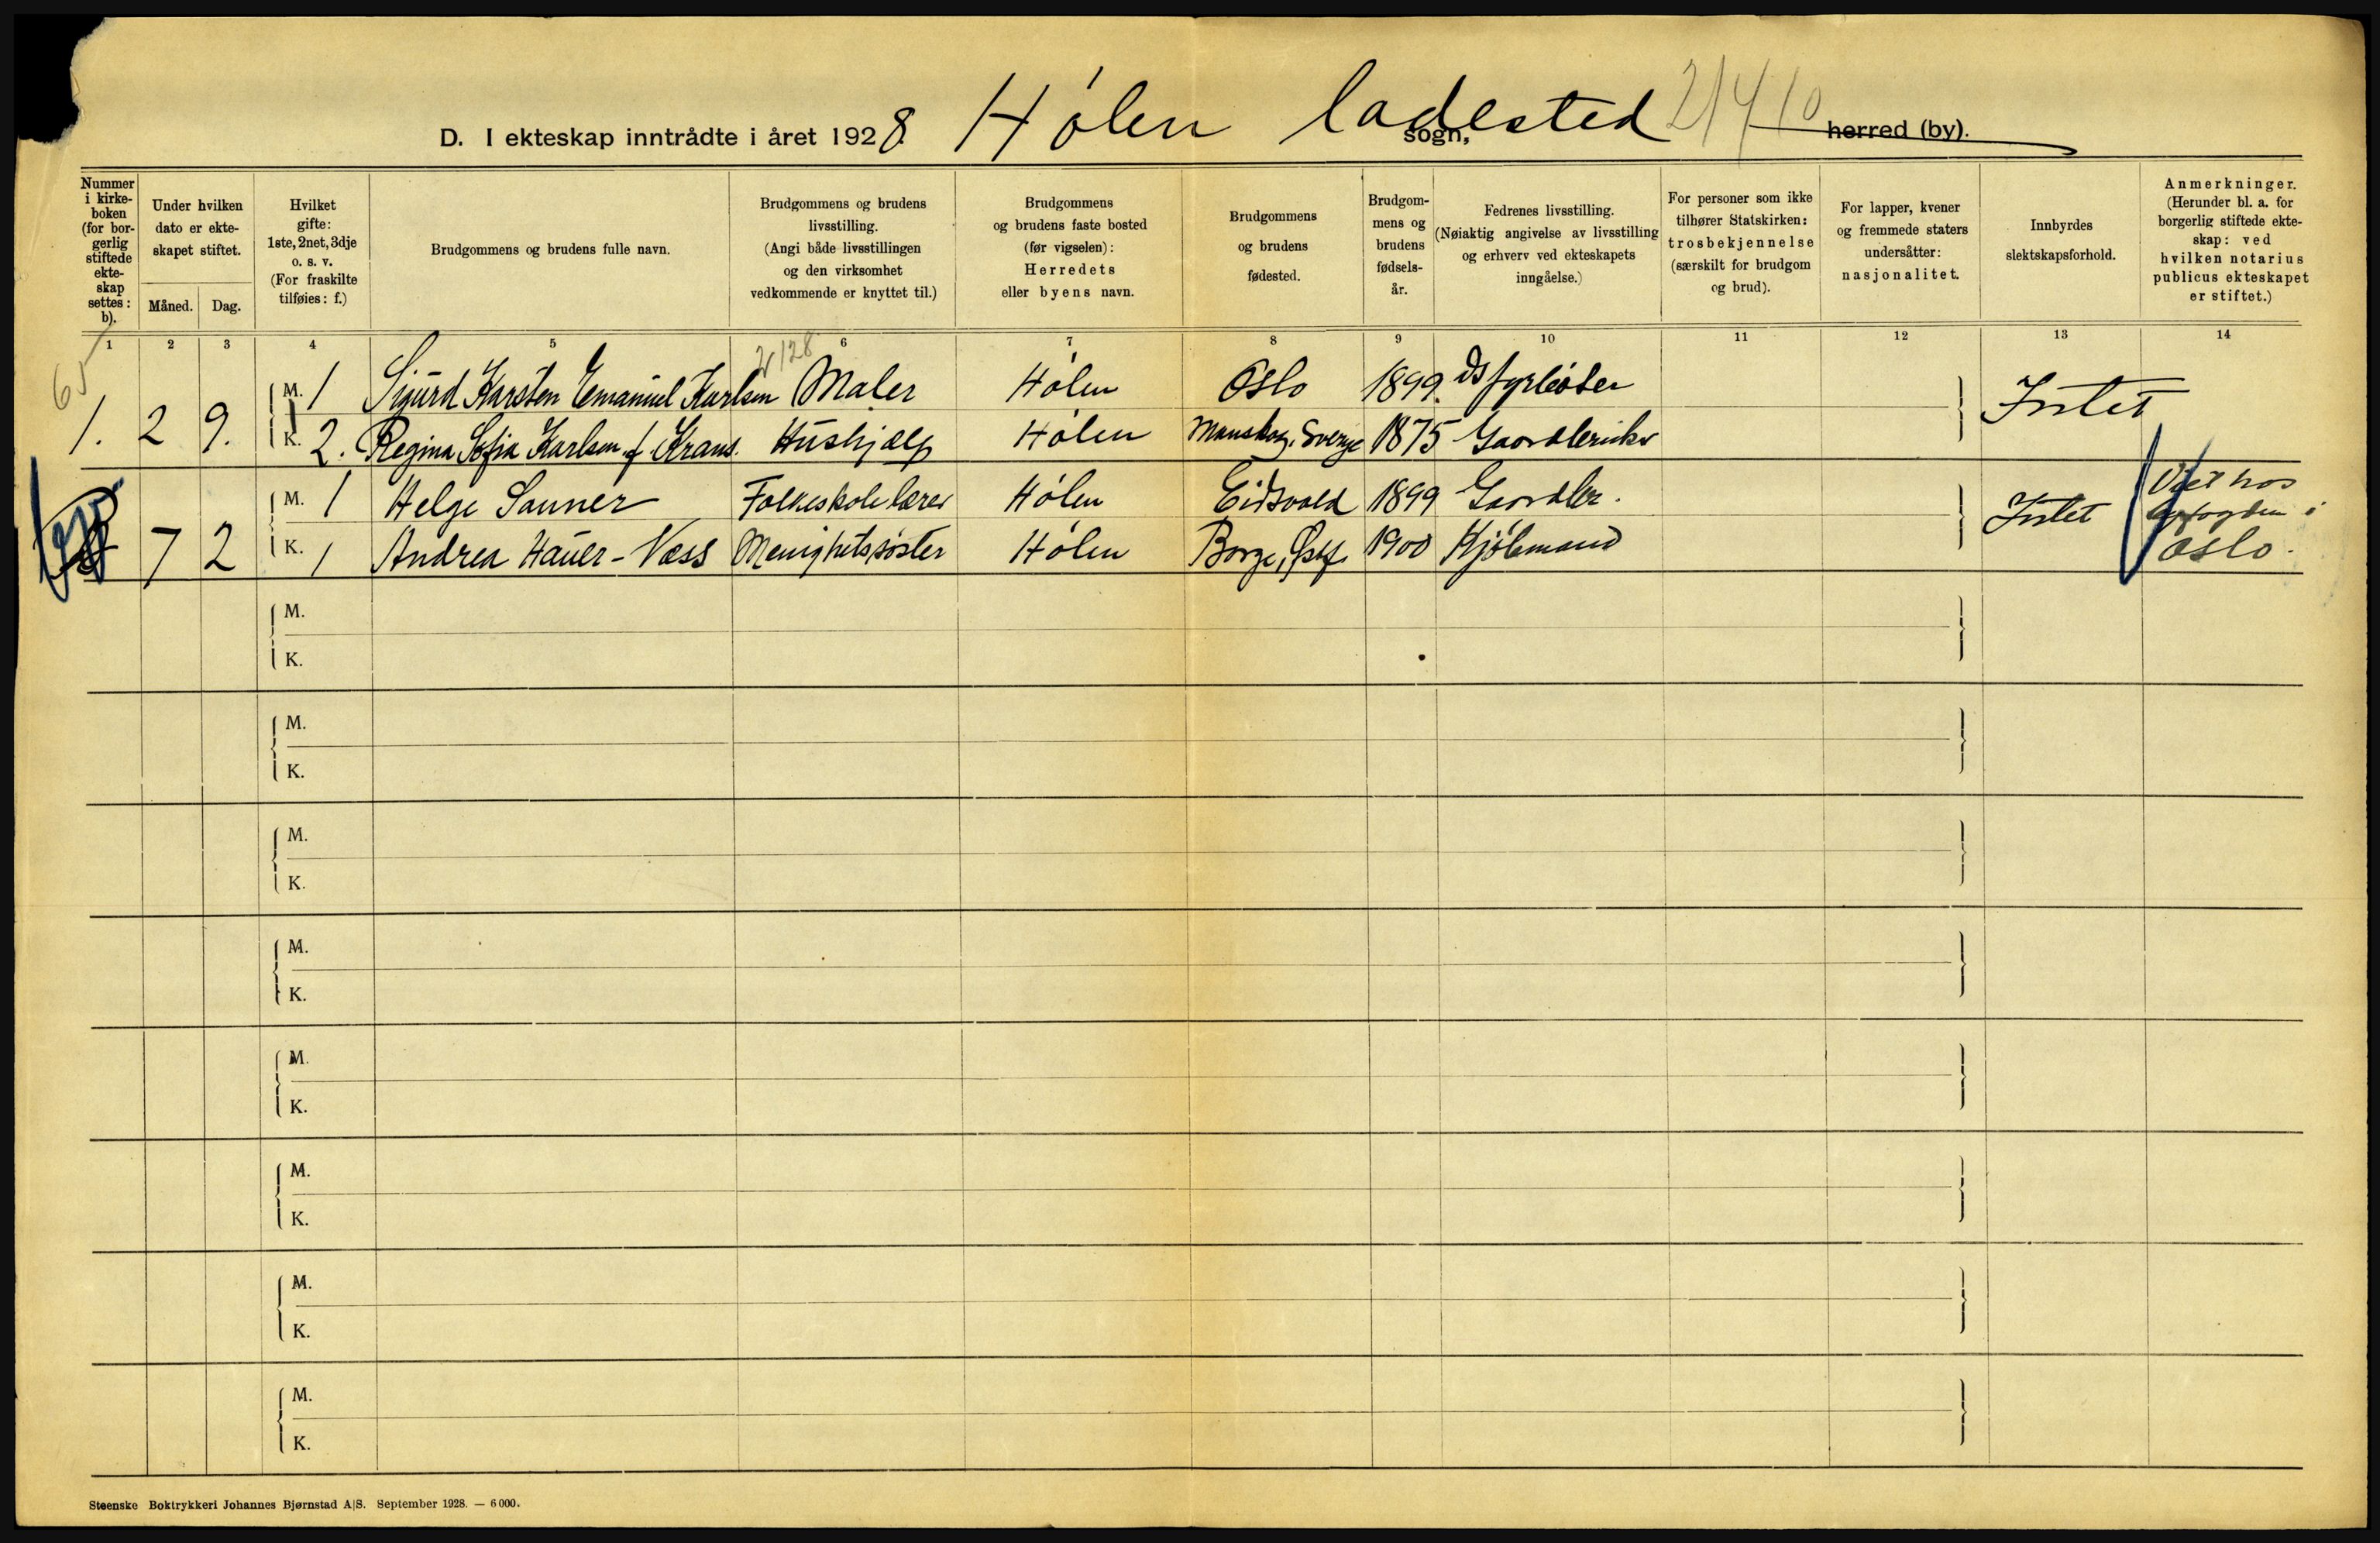 D. I ekteskap inntrådte i året 1928. Hølen ladested sogn, herred (by).
Nummer i kirkeboken (for borgerlig stiftede ekteskap settes: b).
Under hvilken dato er ekteskapet stiftet.
Måned. Dag.
Hvilket gifte: 1ste, 2net, 3dje o. s. v. (For fraskilte tilføies: f.)
Brudgommens og brudens fulle navn.
Brudgommens og brudens livsstilling. (Angi både livsstillingen og den virksomhet vedkommende er knyttet til.)
Brudgommens og brudens faste bosted (før vigselen): Herredets eller byens navn.
Brudgommens og brudens fødested.
Brudgommens og brudens fødselsår.
Fedrenes livsstilling. (Nøiaktig angivelse av livsstilling og erhverv ved ekteskapets inngåelse.)
For personer som ikke tilhører Statskirken: trosbekjennelse (særskilt for brudgom og brud).
For lapper, kvener og fremmede staters undersåtter: nasjonalitet.
Innbyrdes slektskapsforhold.
Anmerkninger. (Herunder bl. a. for borgerlig stiftede ekteskap: ved hvilken notarius publicus ekteskapet er stiftet.)
1 2 3 4 5 6 7 8 9 10 11 12 13 14
65
2/128
M. 1 Sigurd Karsten Emanuel Karlsen Maler Hølen Oslo 1899. Ds fyrbøter
1. 2 9. Intet
K. 2. Regina Sofia Karlsen f. Krans. Hushjælp Hølen Manskog, Sverige 1875 Gaardbruker
M. 1 Helge Sanner Folkeskolelærer Hølen Eidsvold 1899 Gaardbr.
7 2 Intet Viet hos byfogden i Oslo.
K. 1 Andrea Hauer-Næss Menighetssøster Hølen Borge, Østf. 1900 Kjøbmand
M.
K.
M.
K.
M.
K.
M.
K.
M.
K.
M.
K.
M.
K.
M.
K.
Steenske Boktrykkeri Johannes Bjørnstad A|S. September 1928. — 6000.